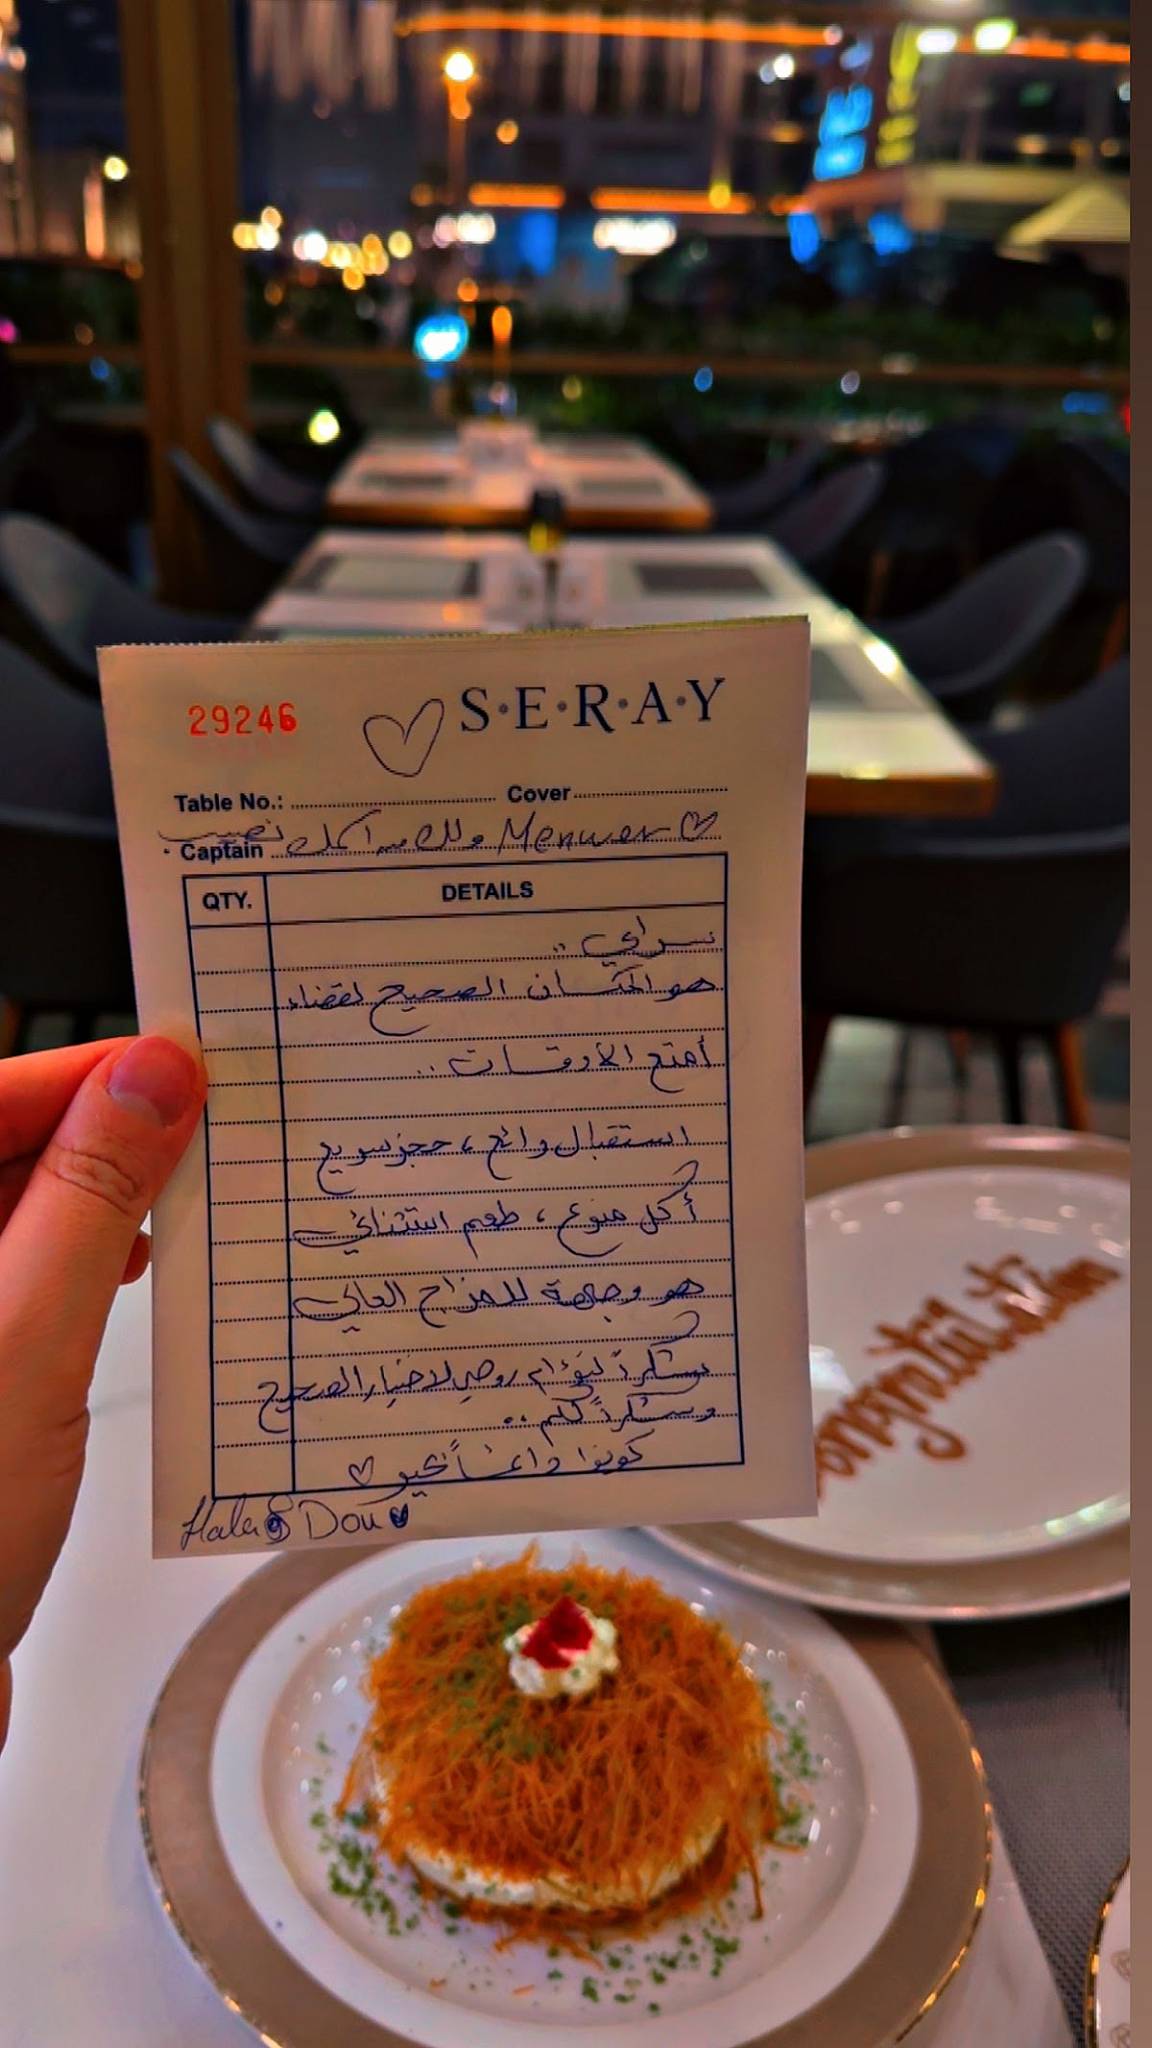 29246
S·E·R·A·Y
Table No.: Cover
Captain وللك من اسمك نصيب Menwer
QTY. DETAILS
سراي ..
هو المكان الصحيح لقضاء
أمتع الأوقات ..
استقبال رائع ، حجز سريع
أكل منوع ، طعم استثنائي
هو وجهة للمزاج العالي
شكراً لتوءام روحي لاختيار الصحيح
وشكراً لكم ..
كونوا دائماً بخير
Hala & Dou
Congratulations